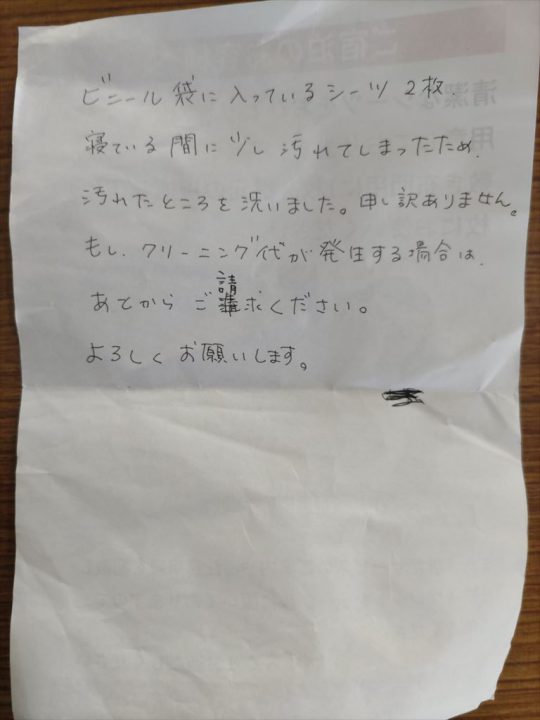 ご宿泊のお客様へ
ビニール袋に入っているシーツ2枚、
寝ている間に少し汚れてしまったため、
汚れたところを洗いました。申し訳ありません。
もし、クリーニング代が発生する場合は、
あとからご請求ください。
よろしくお願いします。